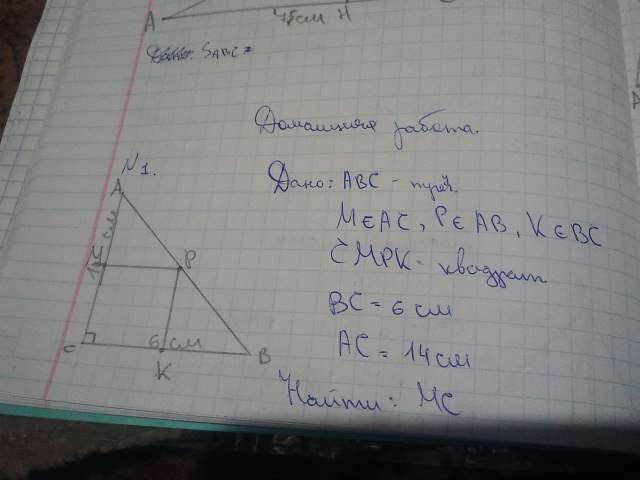 A 45см H
SABC =
Домашняя работа.
№1.
Дано: ABC -
M∈AC, P∈AB, K∈BC
CMPK - квадрат
BC = 6 см
AC = 14 см
Найти: MC
A
см
P
C
6 см
B
K